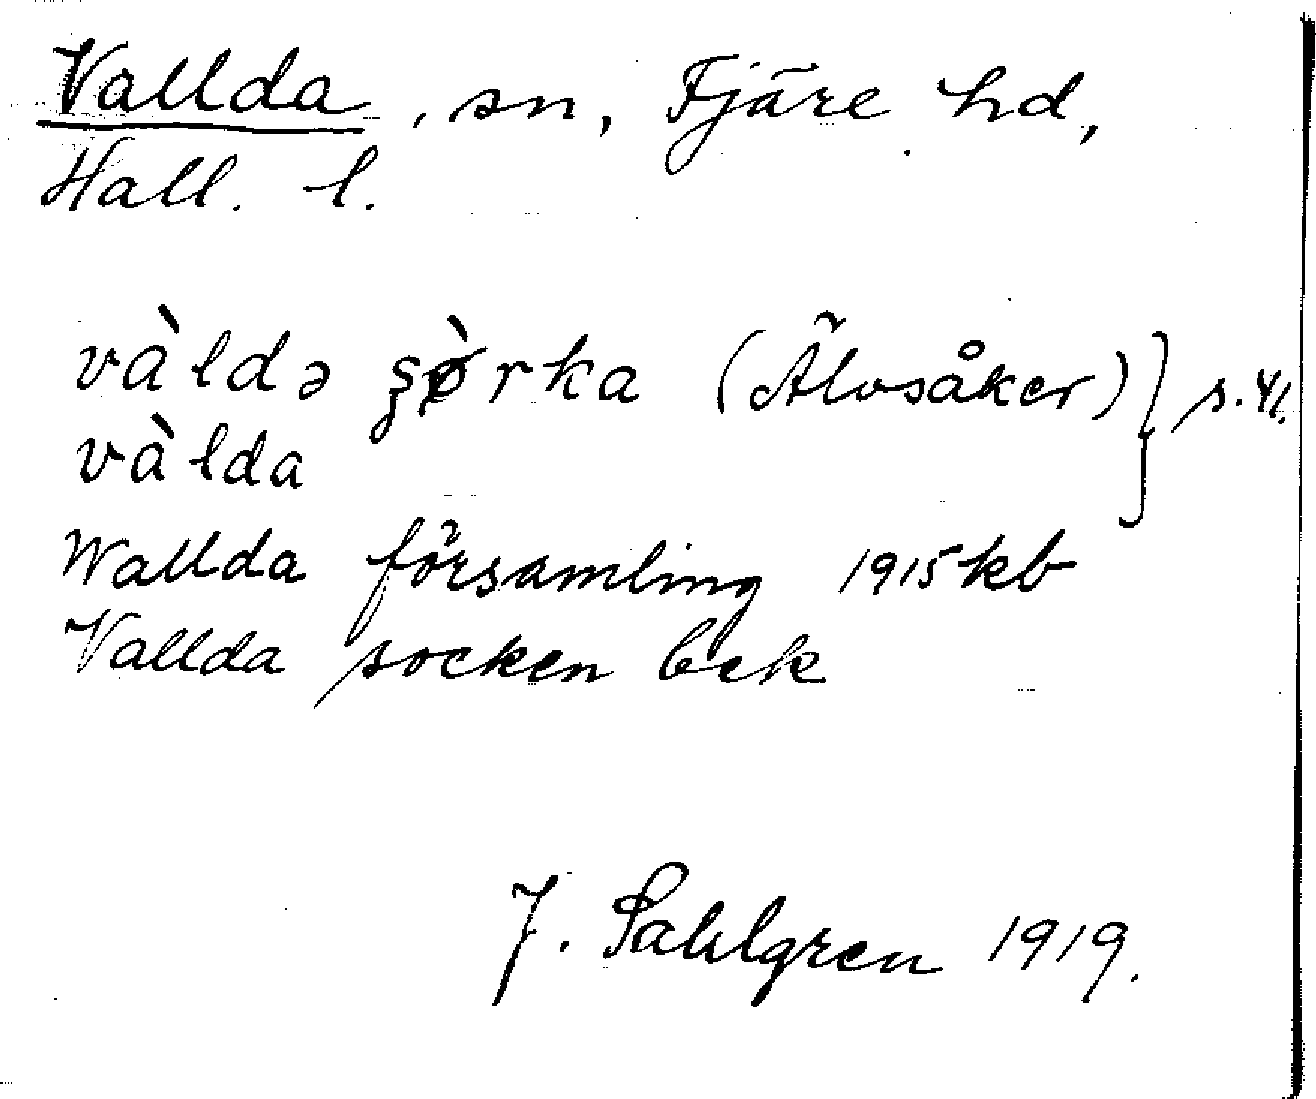 Vallda, sn, Fjäre hd,
Hall. l.
và̀ldə ʂø̀rka (Älvsåker) } s. 41.
vàlda
Wallda församling 1915 kb
Vallda socken bek
J. Sahlgren 1919.